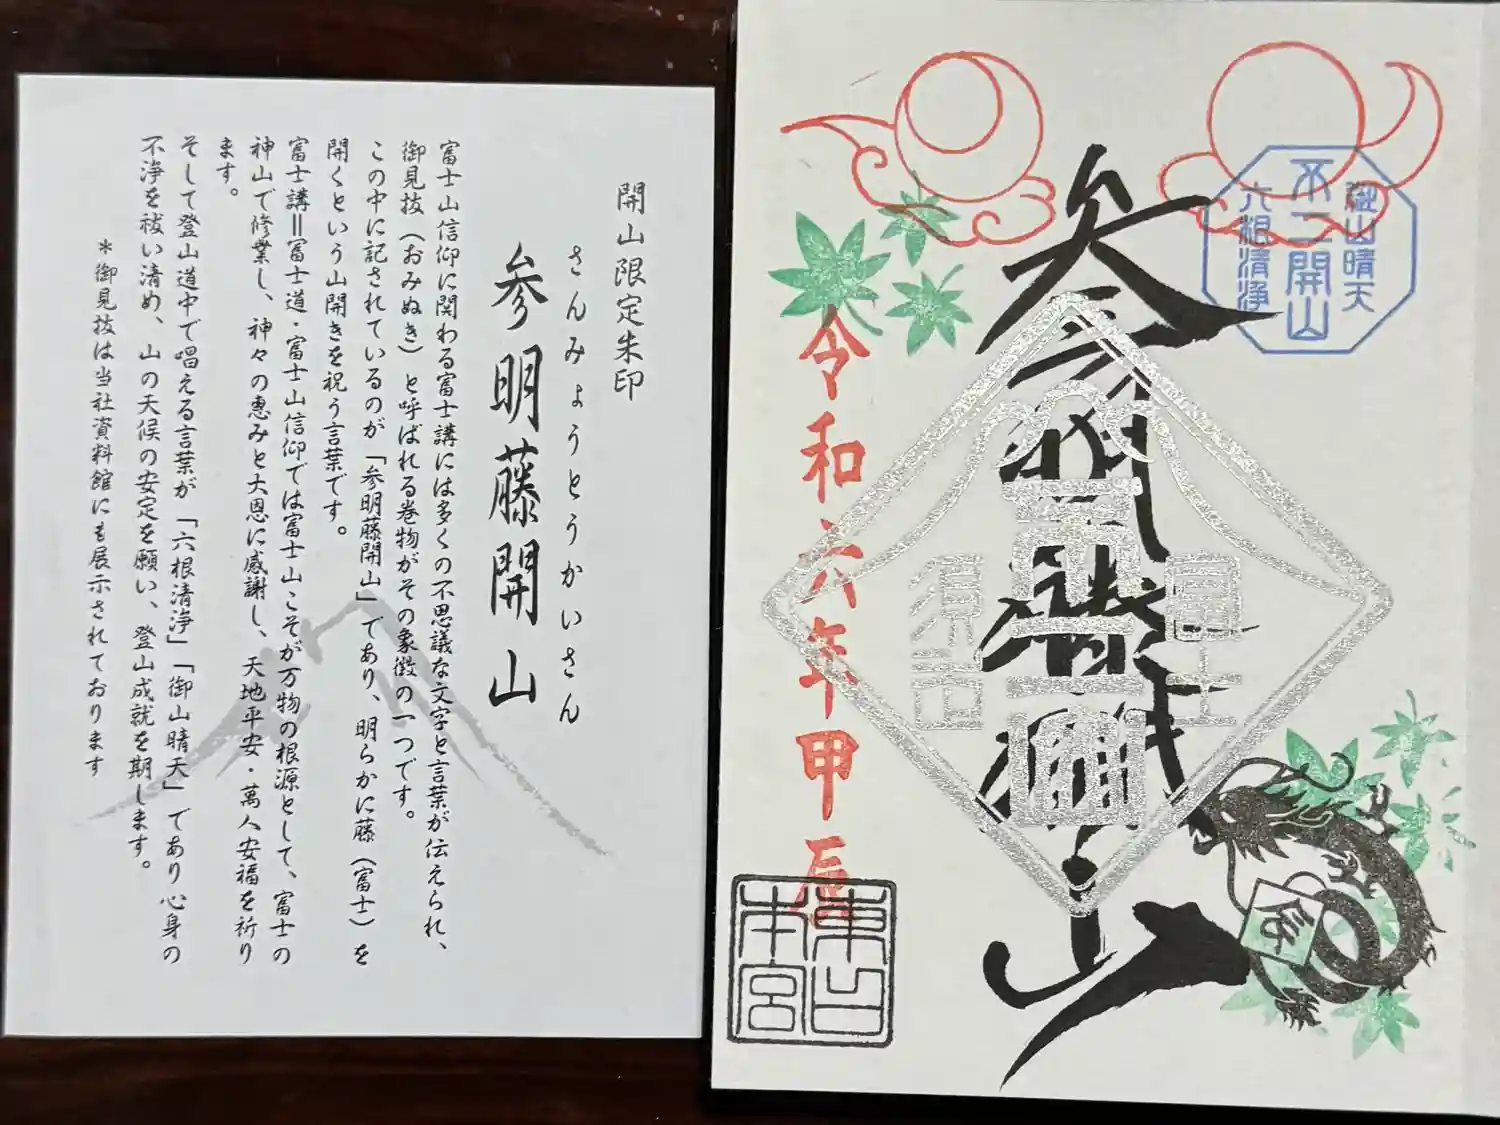 開山限定朱印
さんみょうとうかいさん
参明藤開山
富士山信仰に関わる富士講には多くの不思議な文字と言葉が伝えられ、
御見抜（おみぬき）と呼ばれる巻物がその象徴の一つです。
この中に記されているのが「参明藤開山」であり、明らかに藤（富士）を
開くという山開きを祝う言葉です。
富士講＝富士道・富士山信仰では富士山こそが万物の根源として、富士の
神山で修業し、神々の恵みと大恩に感謝し、天地平安・萬人安福を祈り
ます。
そして登山道中で唱える言葉が「六根清浄」「御山晴天」であり心身の
不浄を祓い清め、山の天候の安定を願い、登山成就を期します。
＊御見抜は当社資料館にも展示されております
御山晴天
不二開山
六根清浄
富士
須走
令和六年甲辰
東口
本宮
辰